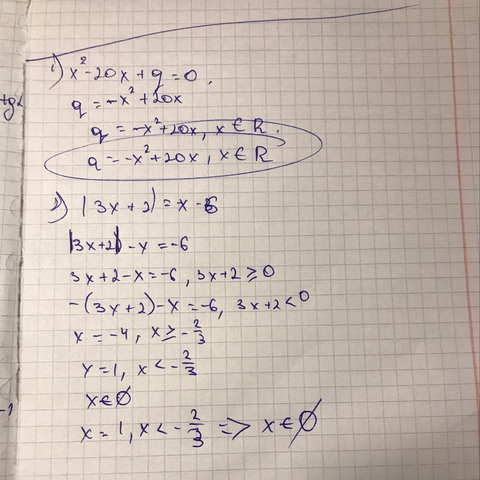 1) x² - 20x + q = 0.
q = -x² + 20x
q = -x² + 20x, x ∈ R.
q = -x² + 20x, x ∈ R
2) |3x + 2| = x - 6
|3x+2| - x = -6
3x + 2 - x = -6, 3x + 2 ≥ 0
-(3x + 2) - x = -6, 3x + 2 < 0
x = -4, x ≥ -2/3
x = 1, x < -2/3
x ∈ ∅
x = 1, x < -2/3 => x ∈ ∅